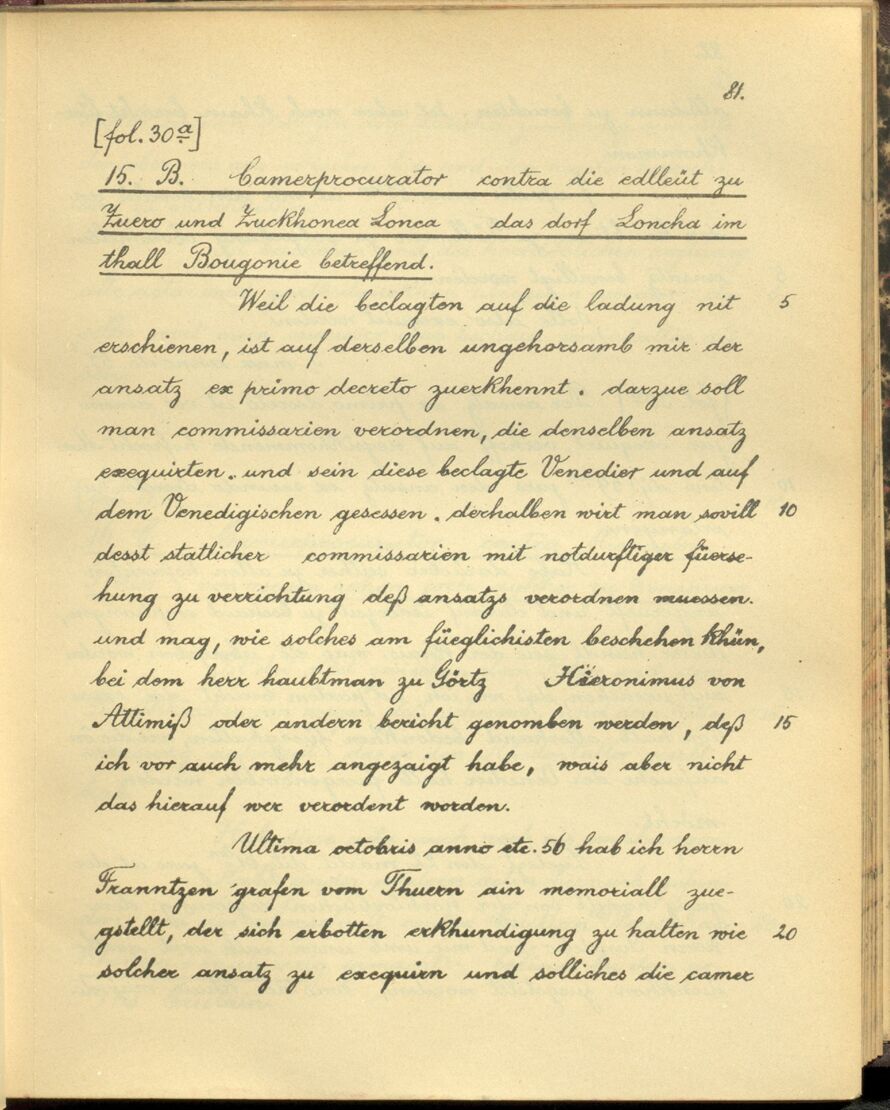 81.
[fol. 30a]
15. B. Camerprocurator contra die edlleüt zu
Zuero und Zuckhonea Lonca das dorf Loncha im
thall Bougonie betreffend.
Weil die beclagten auf die ladung nit 5
erschienen, ist auf derselben ungehorsamb mir der
ansatz ex primo decreto zuerkhennt. darzue soll
man commissarien verordnen, die denselben ansatz
exequirten. und sein diese beclagte Venedier und auf
dem Venedigischen gesessen. derhalben wirt man sovill 10
desst statlicher commissarien mit notdurftiger füerse-
hung zu verrichtung deß ansatzs verordnen muessen.
und mag, wie solches am füeglichisten beschehen khün,
bei dem herr haubtman zu Görtz Hieronimus von
Attimiß oder andern bericht genomben werden, deß 15
ich vor auch mehr angezaigt habe, wais aber nicht
das hierauf wer verordent worden.
Ultima octobris anno etc. 56 hab ich herrn
Franntzen grafen vom Thuern ain memoriall zue-
gstellt, der sich erbotten erkhundigung zu halten wie 20
solcher ansatz zu exequirn und solliches die camer